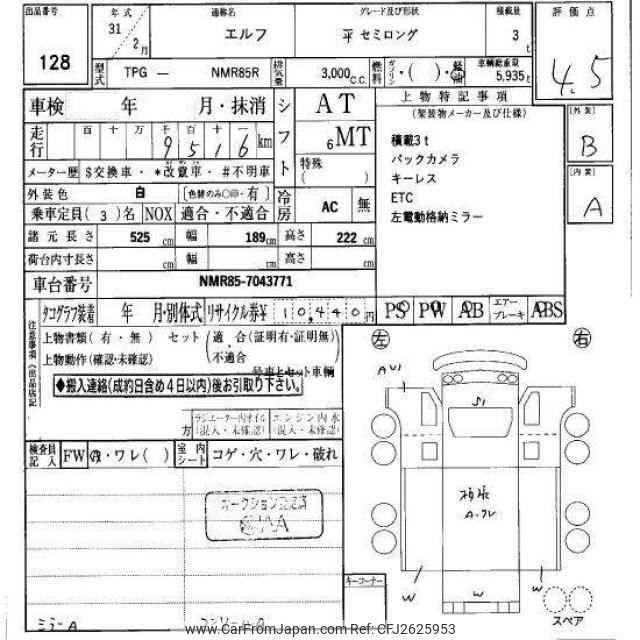 出品番号 年式 通称名 グレード及び形状 積載量 評価点
128 31年 2月 エルフ 平 セミロング 3t 4.5
型式 TPG — NMR85R 排気量 3,000c.c. 燃料 ガソリン・( )・軽油 車輌総重量 5,935kg
車検 年 月・抹消 シフト AT 6MT 特殊( )
上物特記事項
(架装物メーカー及び仕様)
[外装]
B
[内装]
A
走行 百 十 万 千 百 十 一
9516km
積載3t
バックカメラ
キーレス
ETC
左電動格納ミラー
メーター歴 $交換車・*改竄車・#不明車
外装色 白 (色替のみ○印・有) 冷房 AC 無
乗車定員(3)名 NOX 適合・不適合
諸元長さ 525cm 幅 189cm 高さ 222cm
荷台内寸長さ cm 幅 cm 高さ cm
車台番号 NMR85-7043771
タコグラフ装着 年 月・別体式 リサイクル券¥ 10,440円 PS PW AB エアーブレーキ ABS
注意事項(出品店記
上物書類(有・無) セット(適 合(証明有・証明無)
上物動作(確認・未確認) (不適合
号車とセット車輌
◆搬入連絡(成約日含め4日以内)後お引取り下さい。
左 右
AU1
S1
方 ラジエーター内オイル(混入・未確認) エンジン内水(混入・未確認)
検査員記入 FW A・ワレ( ) 室内シート コゲ・穴・ワレ・破れ
A-クレ
W W W
キーコーナー
スペア
ミラーA
www.CarFromJapan.com Ref: CFJ2625953